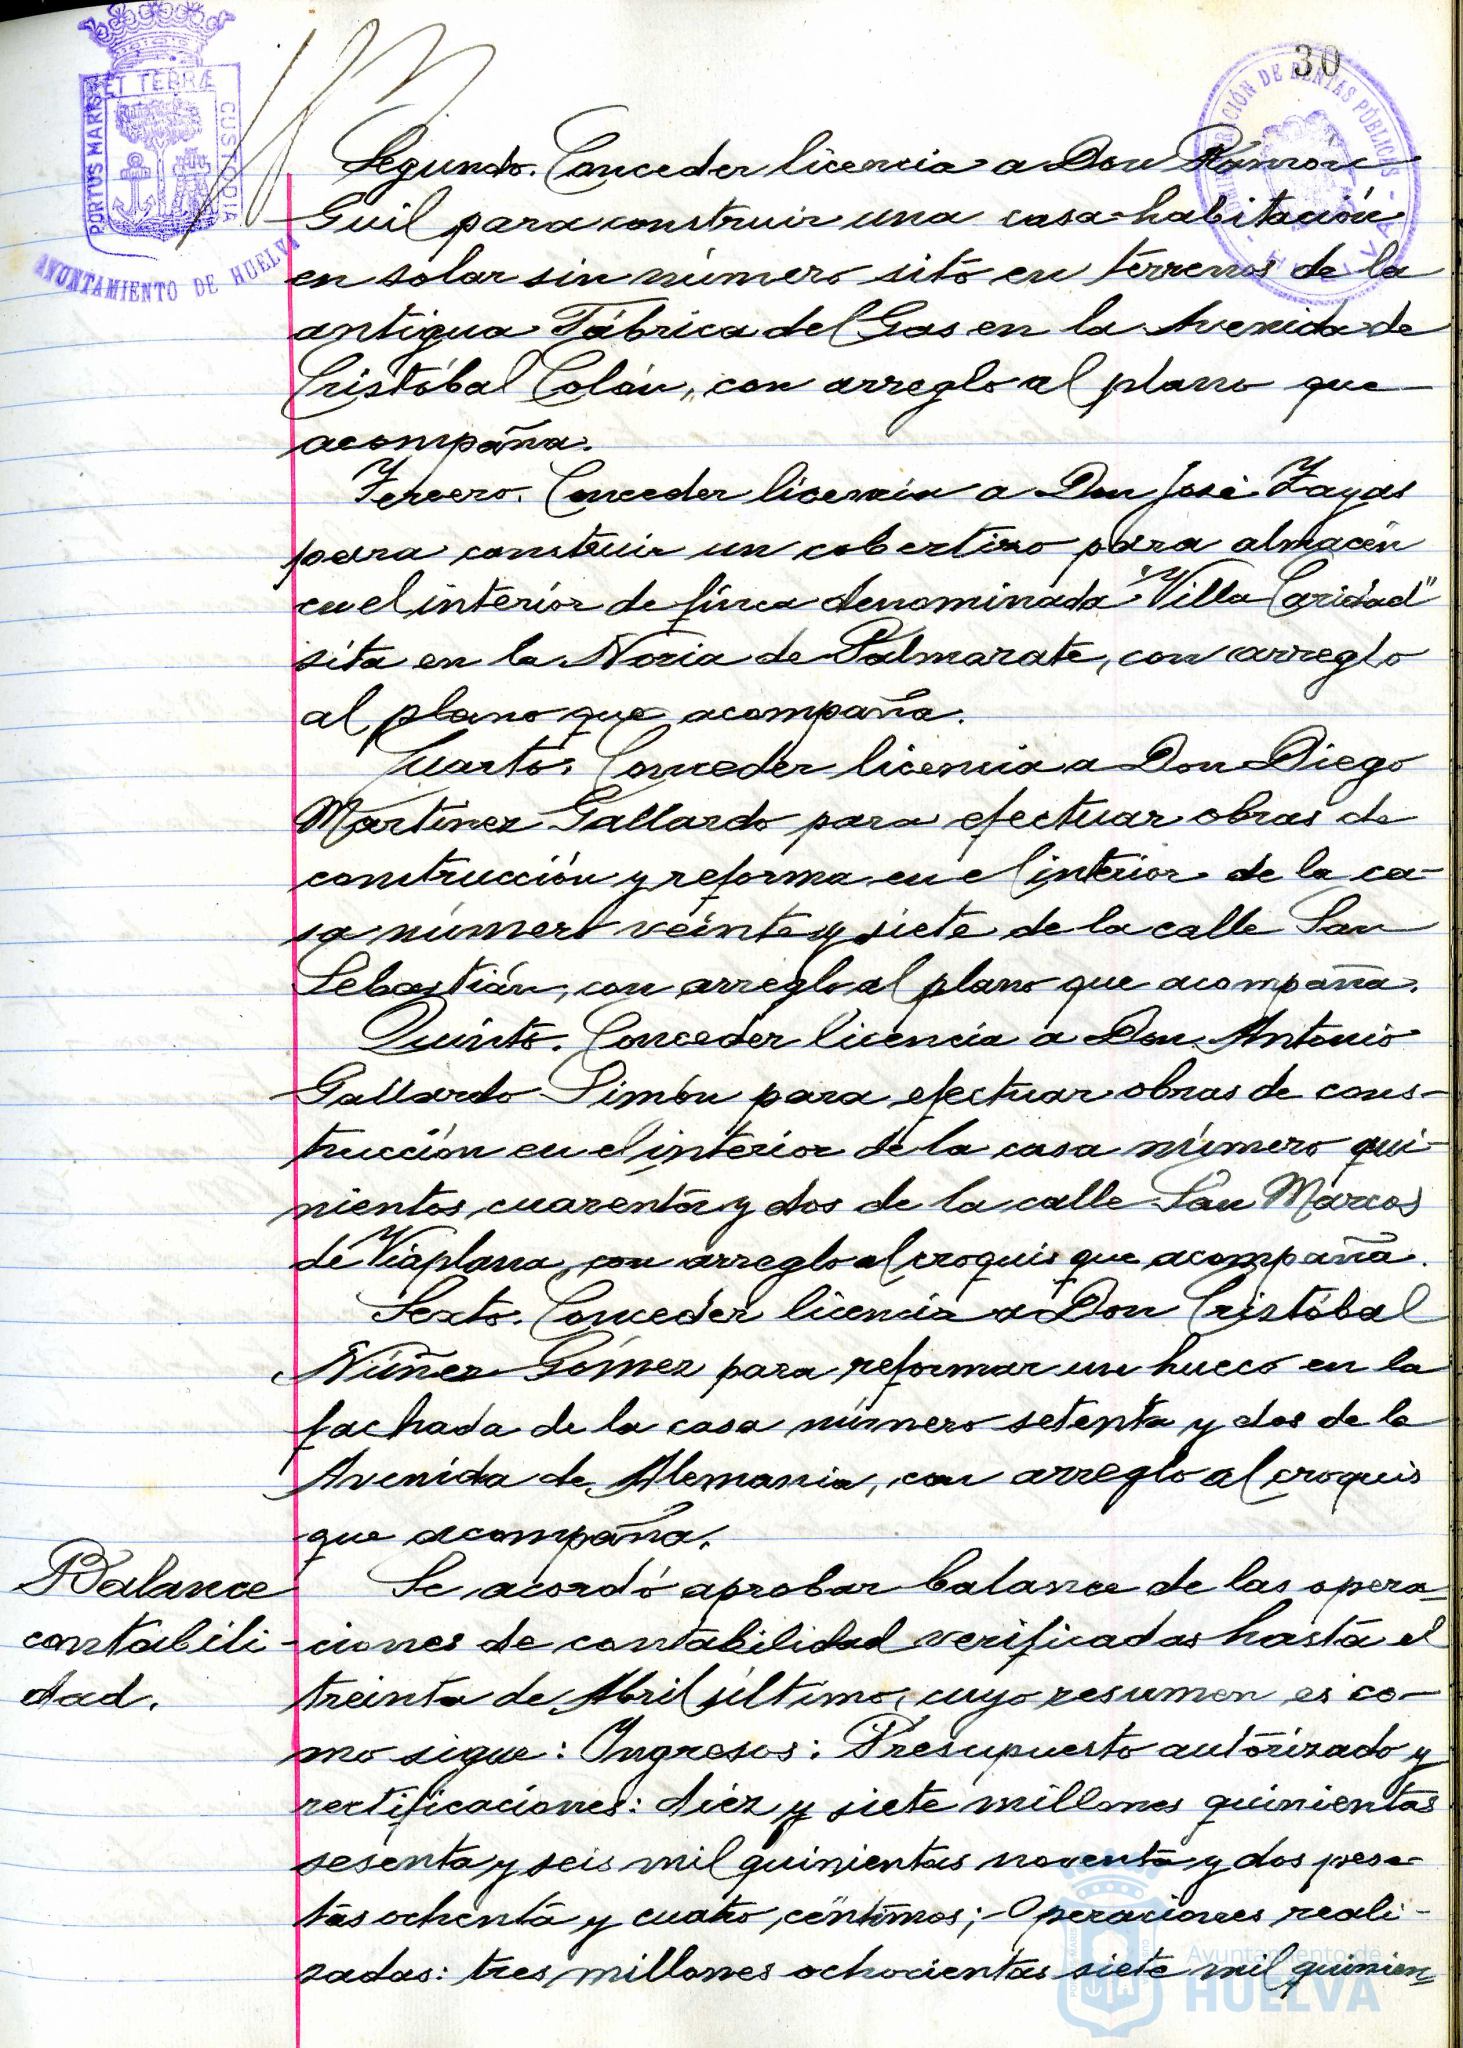 30
PORTUS MARIS ET TERRÆ CUSTODIA
AYUNTAMIENTO DE HUELVA
Segundo. Conceder licencia a Don Ramón
Guil para construir una casa-habitación
en solar sin número sito en terrenos de la
antigua Fábrica del Gas en la Avenida de
Cristóbal Colón, con arreglo al plano que
acompaña.
Tercero. Conceder licencia a Don José Zayas
para construir un cobertizo para almacén
en el interior de finca denominada "Villa Caridad"
sita en la Noria de Palmarate, con arreglo
al plano que acompaña.
Cuarto. Conceder licencia a Don Diego
Martínez Gallardo para efectuar obras de
construcción y reforma en el interior de la ca-
sa número veinte y siete de la calle San
Sebastián, con arreglo al plano que acompaña.
Quinto. Conceder licencia a Don Antonio
Gallardo Simón para efectuar obras de cons-
trucción en el interior de la casa número qui-
nientos cuarenta y dos de la calle San Marcos
de Viaplana, con arreglo al croquis que acompaña.
Sexto. Conceder licencia a Don Cristóbal
Núñez Gómez para reformar un hueco en la
fachada de la casa número setenta y dos de la
Avenida de Alemania, con arreglo al croquis
que acompaña.
Balance
contabili-
dad.
Se acordó aprobar balance de las opera-
ciones de contabilidad verificadas hasta el
treinta de Abril último, cuyo resumen es co-
mo sigue: Ingresos: Presupuesto autorizado y
rectificaciones: diez y siete millones quinientas
sesenta y seis mil quinientas noventa y dos pese-
tas ochenta y cuatro céntimos; Operaciones reali-
zadas: tres millones ochocientas siete mil quinien-
Ayuntamiento de
HUELVA